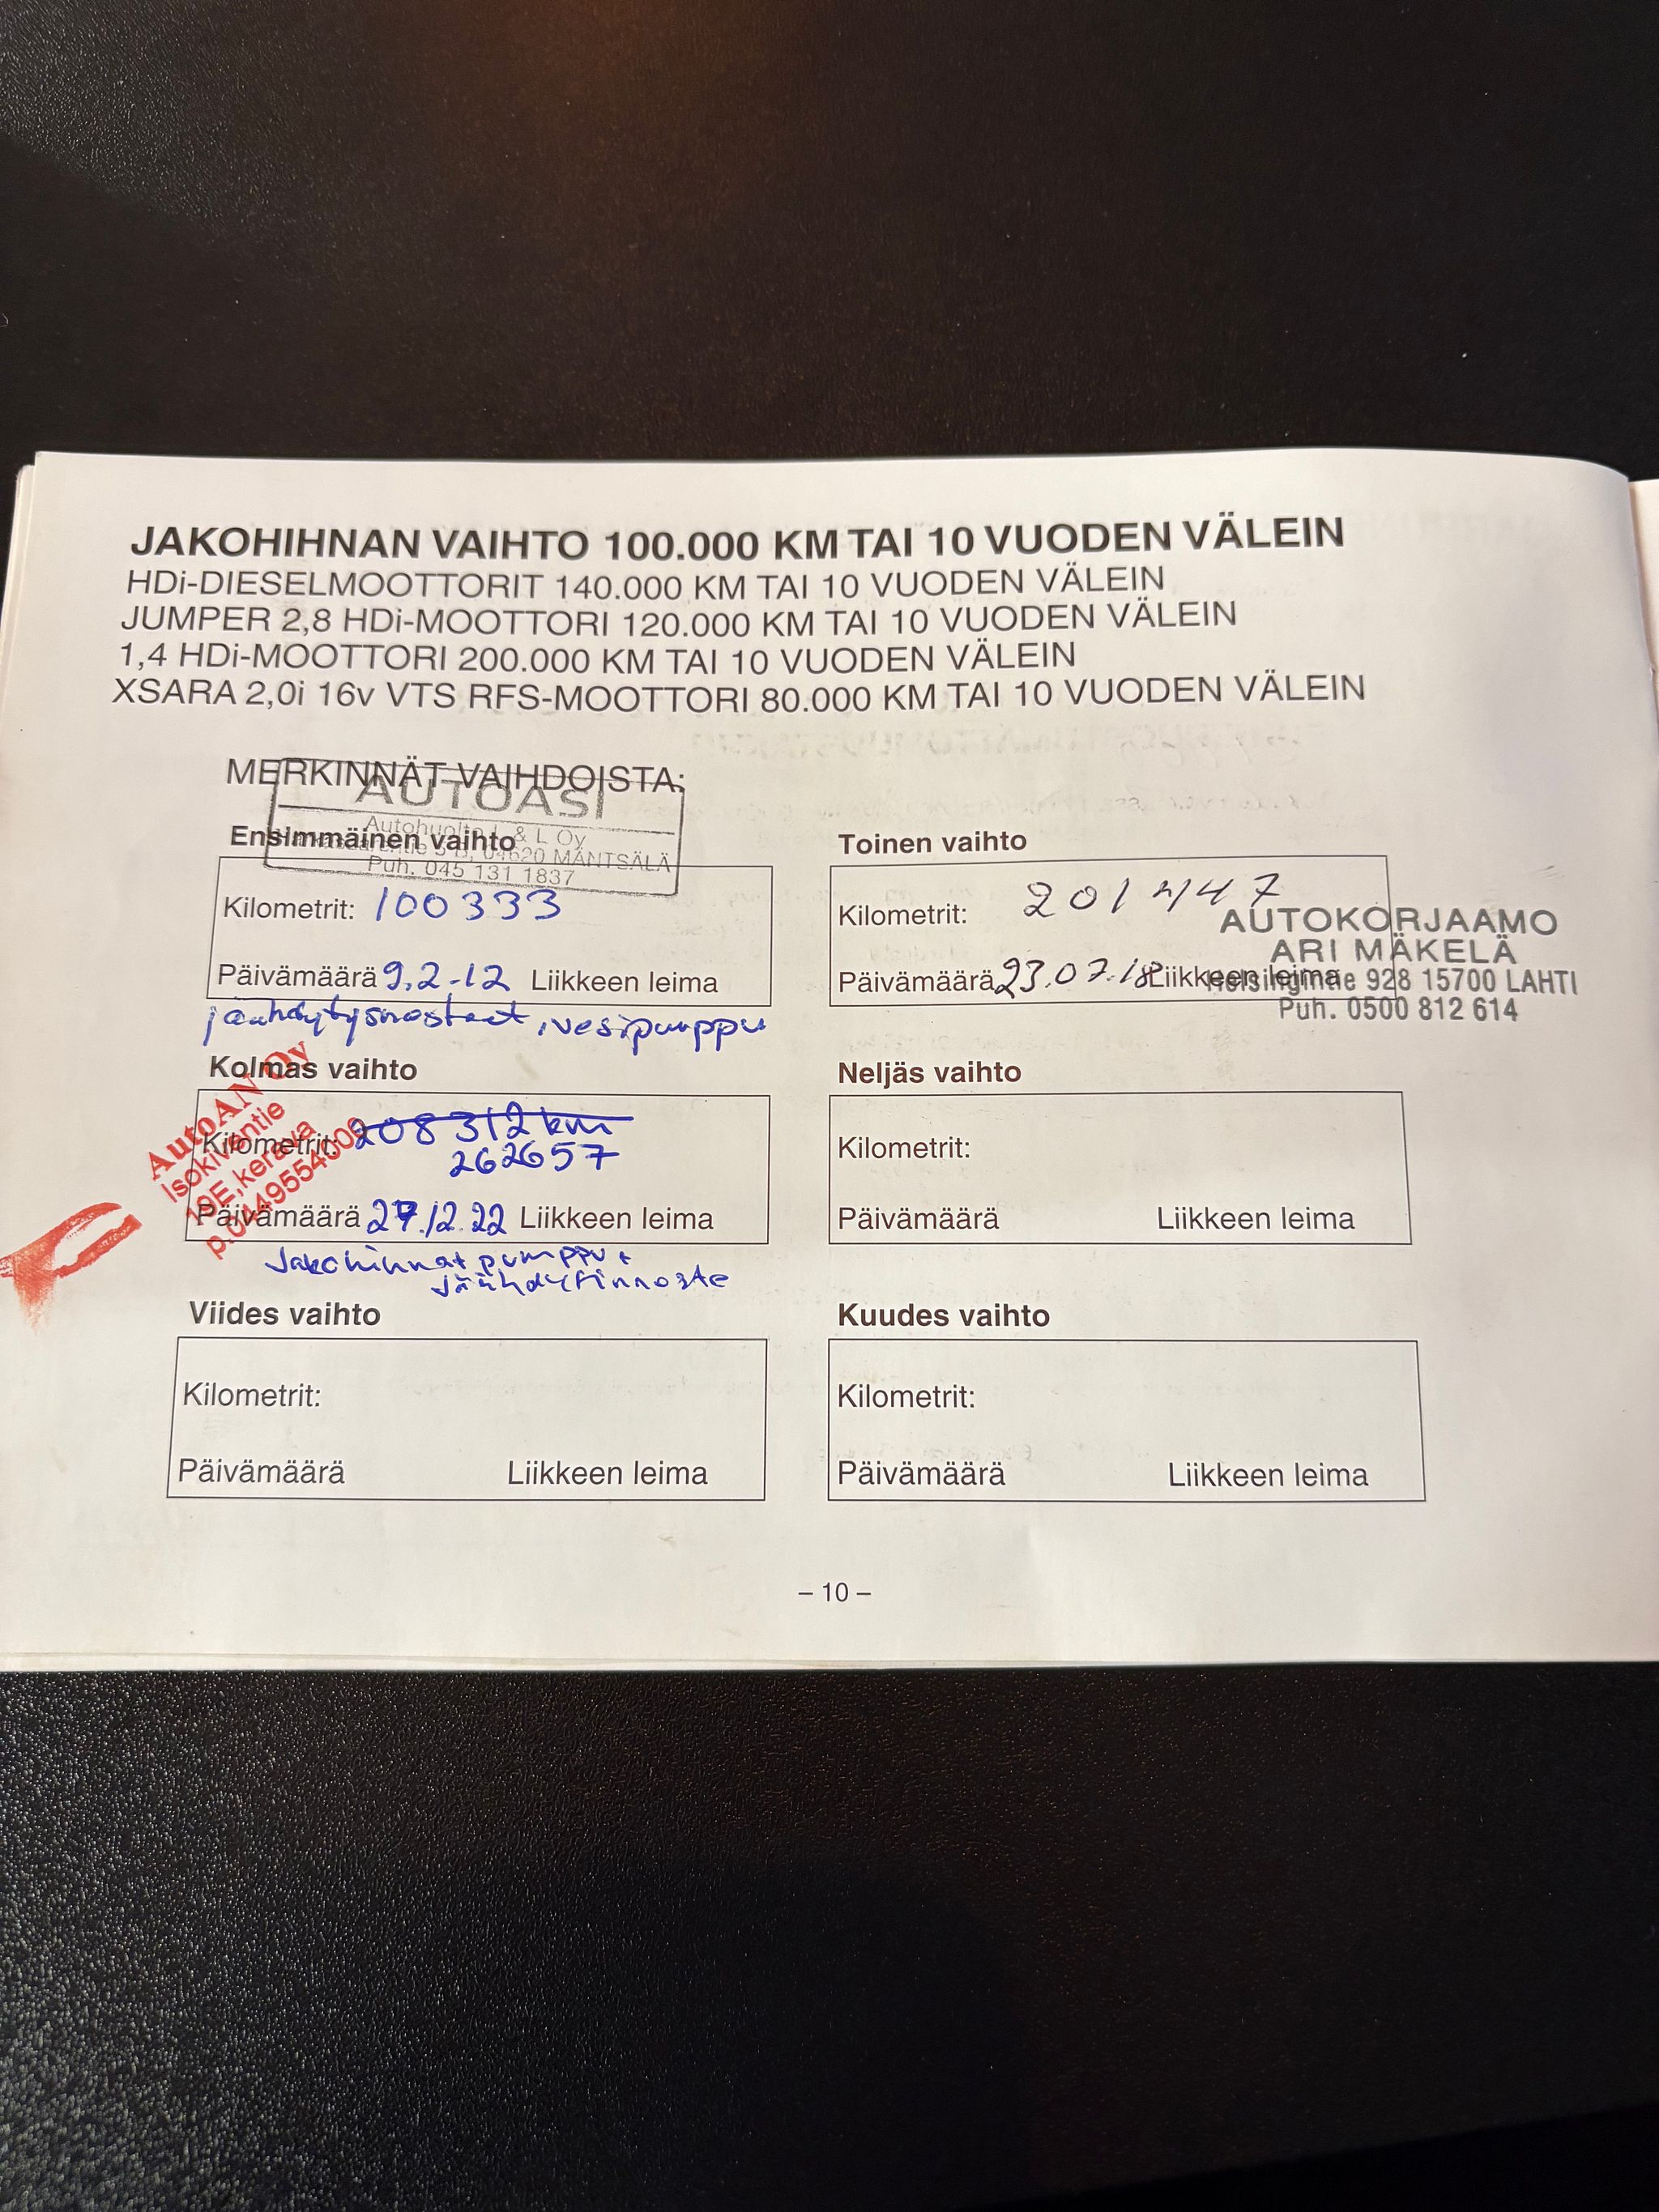 JAKOHIHNAN VAIHTO 100.000 KM TAI 10 VUODEN VÄLEIN
HDi-DIESELMOOTTORIT 140.000 KM TAI 10 VUODEN VÄLEIN
JUMPER 2,8 HDi-MOOTTORI 120.000 KM TAI 10 VUODEN VÄLEIN
1,4 HDi-MOOTTORI 200.000 KM TAI 10 VUODEN VÄLEIN
XSARA 2,0i 16v VTS RFS-MOOTTORI 80.000 KM TAI 10 VUODEN VÄLEIN
MERKINNÄT VAIHDOISTA:
AUTOASI
Autohuolto & L Oy
04620 MÄNTSÄLÄ
Puh. 045 131 1837
Ensimmäinen vaihto
Kilometrit: 100333
Päivämäärä 9.2-12 Liikkeen leima
jäähdytysnesteet, vesipumppu
Toinen vaihto
Kilometrit: 201447
Päivämäärä 23.07.18 Liikkeen leima
AUTOKORJAAMO
ARI MÄKELÄ
928 15700 LAHTI
Puh. 0500 812 614
Kolmas vaihto
AutoAN Oy
Isokiventie
19E, kerava
Kilometrit: 208312 km
262657
Päivämäärä 27.12.22 Liikkeen leima
Jakohihnat pumppu +
Neljäs vaihto
Kilometrit:
Päivämäärä Liikkeen leima
Viides vaihto
Kilometrit:
Päivämäärä Liikkeen leima
Kuudes vaihto
Kilometrit:
Päivämäärä Liikkeen leima
– 10 –